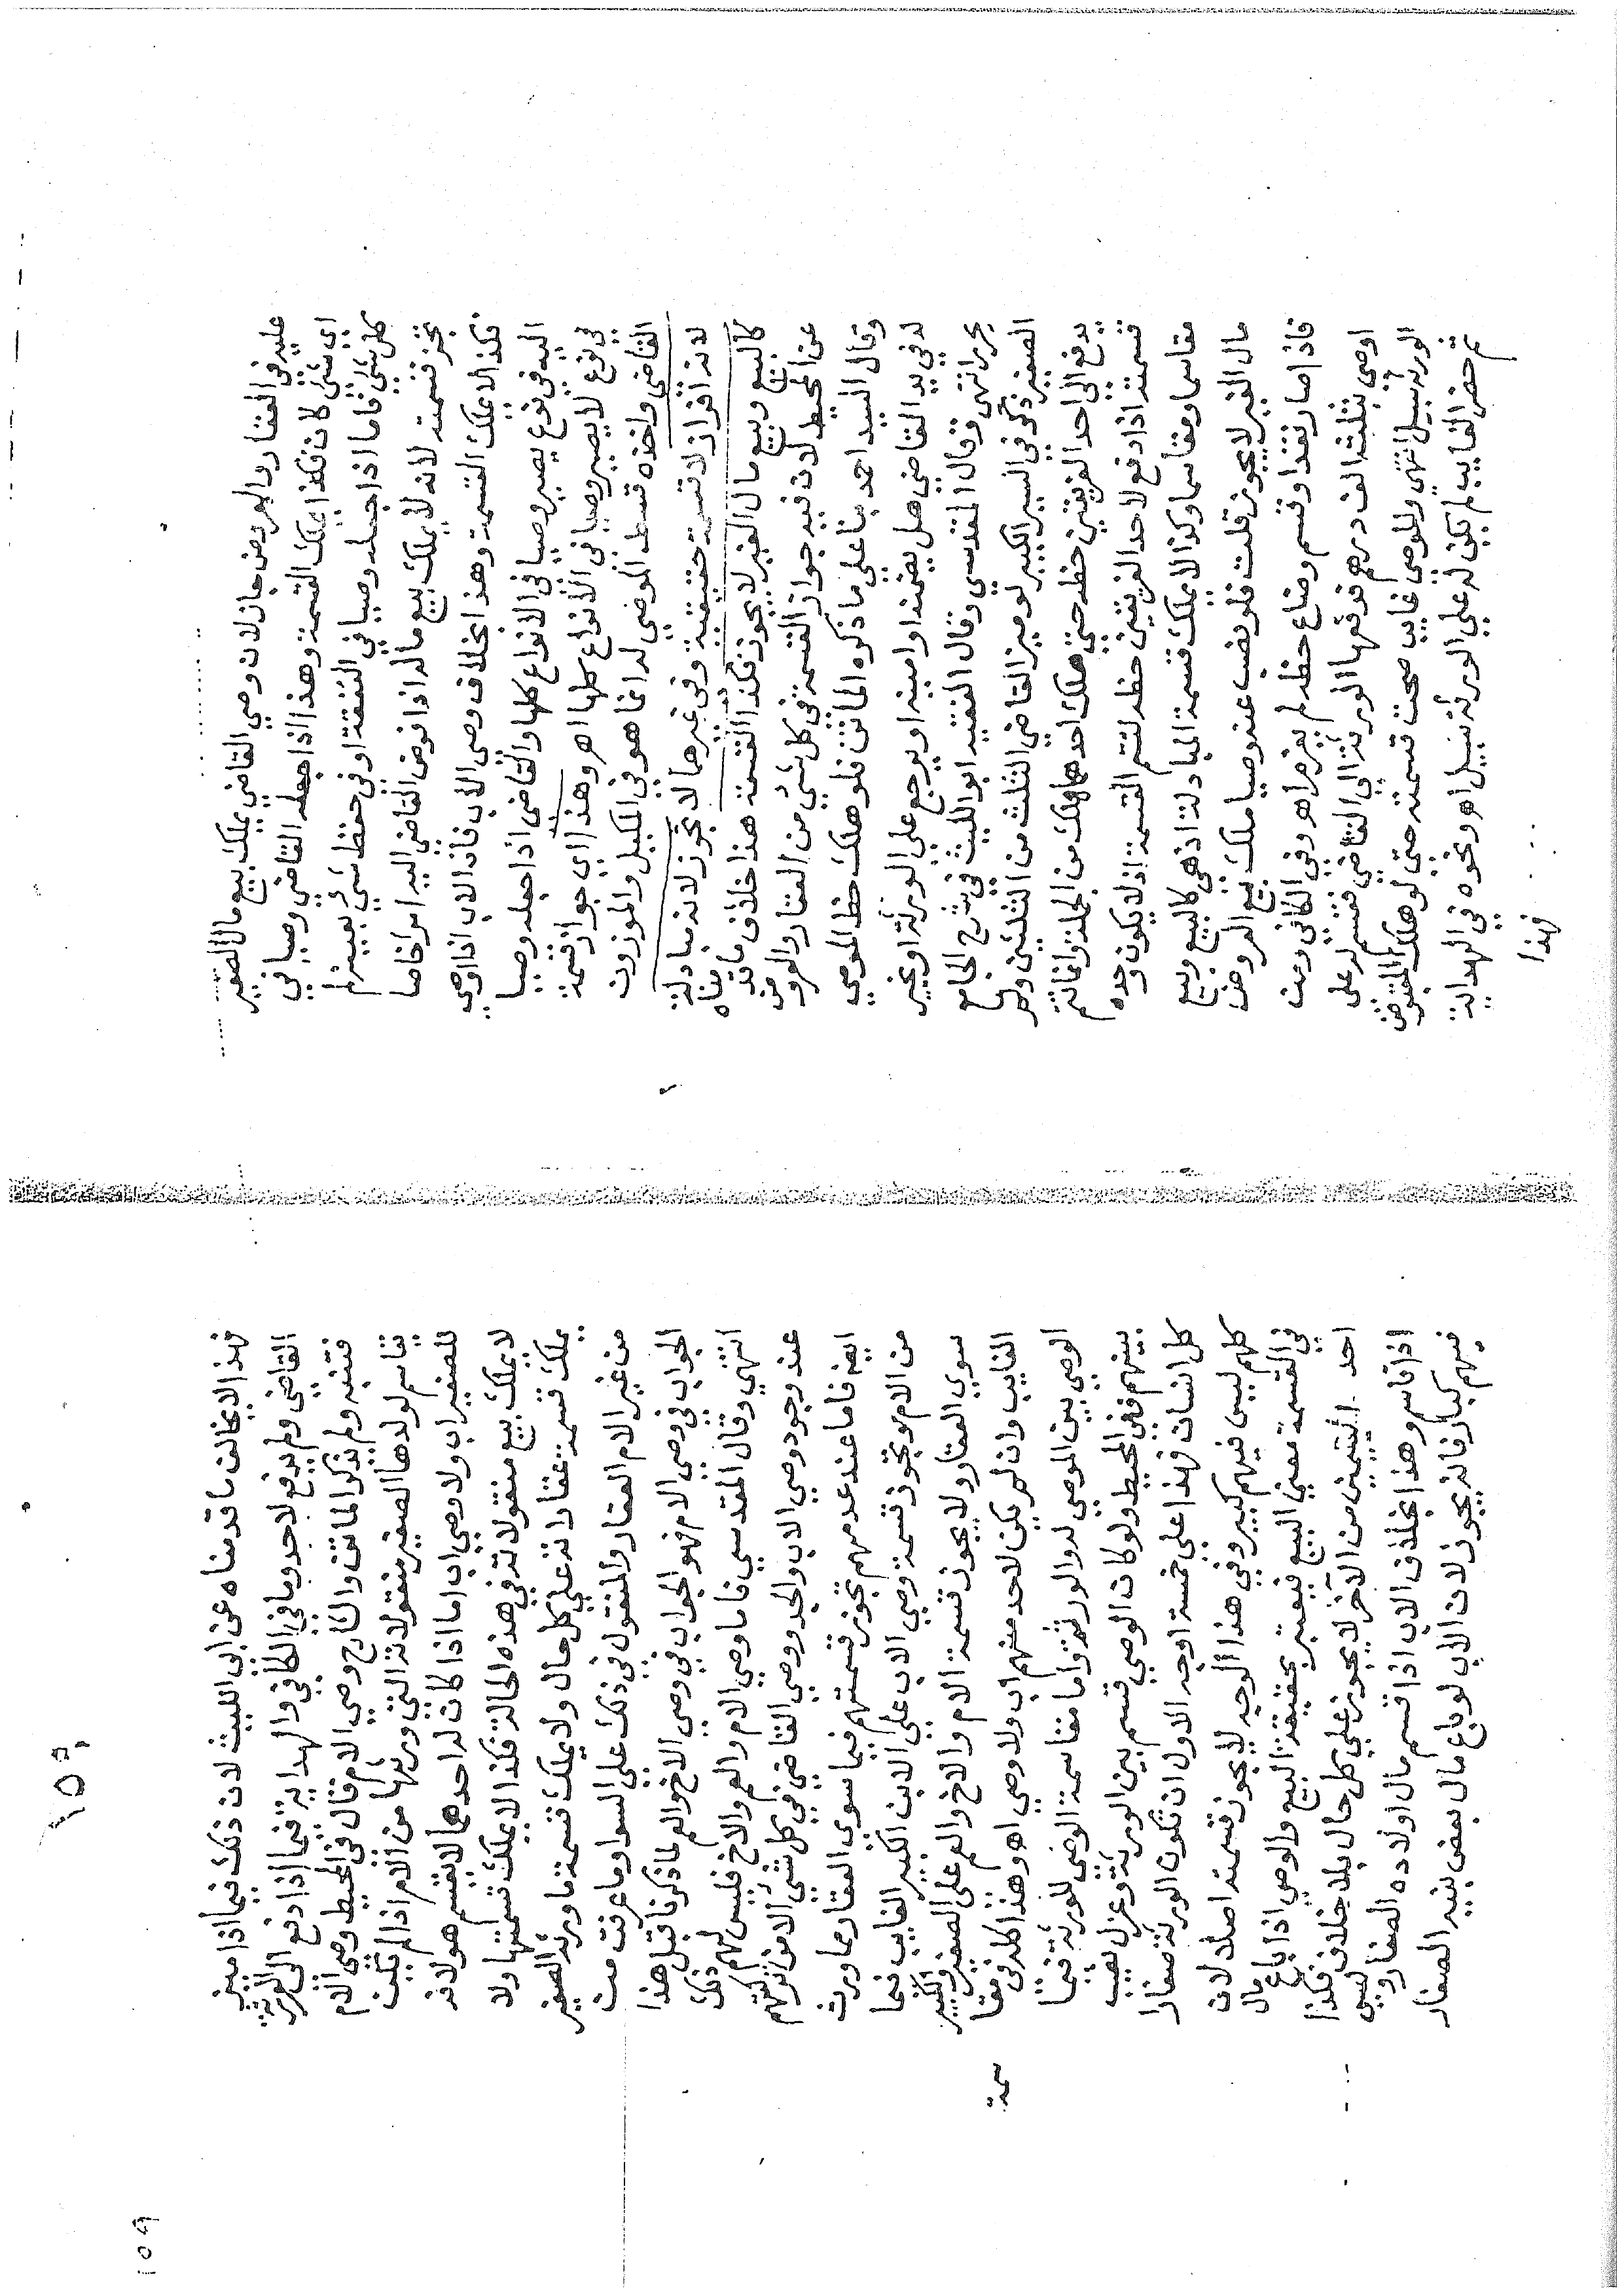 عليه في العقار والعروض جاز لان وصي القاضي يملك بيع مال الصغير
اي شئي كان فكذا يملك القسمة وهذا اذا جعله القاضي وصيا في
كل شئي فاما اذا جعله وصيا في النفقة او في حفظ شئي بعينه لم
تجز قسمته لانه لا يملك بيع ماله اذا فوض القاضي اليه امرا خاصا
فكذا لا يملك القسمة وهذا بخلاف وصي الاب فان الاب اذا اوصي
اليه في نوع يصير وصيا في الانواع كلها والقاضي اذا جعله وصيا
في نوع لا يصير وصيا في الأنواع كلها اهـ وهذا اي جواز قسمة
القاضي واخذه قسط الموصي له انما هو في المكيل والموزون
لانه افراز لا قسمة حقيقية وفي غيرهما لا تجوز لانه مبادلة
كالبيع وبيع مال الغير لا يجوز فكذا القسمة هذا خلاف ما قدمناه
عن المحيط لان فيه جواز القسمة في كل شئ من العقار والعروض
وقال السيد احمد بنا علي ما ذكره الماتن فلو هلك حظ الموصي
له في يد القاضي هل يضمنه او امينه او يرجع علي الورثة او يخير
يحرر انتهي وقال المقدسي وقال الفقيه ابو الليث في شرح الجامع
الصغير ذكر في السير الكبير لو ميز القاضي الثلث من الثلثين ولم
يدفع الي احد الفريقين حظه حتي هلك احدهما هلك من الجملة وانما تتم
قسمته اذا دفع لاحد الفريقين حظه لتتم القسمة اذ لا يكون وحده
مقاسما ومقاسما وكذا لا يملك قسمة المبادلة اذ هي كالبيع وبيع
مال الغير لا يجوز قلت فلو نصب عنه وصيا ملك بيع العروض
فاذا صار نقدا وقسم وضاع حظه لم يغرم اهـ وفي الكافي ومن
اوصي بثلث الف درهم فوقعها الورثة الي القاضي فقسم له علي
الورثة انتهي والموصي غايب صحت قسمته حتي لو هلك المقبوض
ثم حضر الغايب لم يكن له علي الورثة سبيل اهـ ونحوه في الهداية
فهذا
١٥٩
فهذا لا يخالف ما قدمناه عن ابي الليث لان ذلك فيما اذا ميز
القاضي ولم يدفع لاحد وما في الكافي والهداية فيما اذا دفع الي الورثة
فتنبه ولم يذكر الماتن والشارح وصي الام قال في المحيط وصي الام
يقاسم لولدها الصغير منقولاته التي ورثها من الام اذا لم يكن
للصغير اب ولا وصي اب اما اذا كان له احدهما لا يقسم هو لانه
لا يملك بيع منقولاته في هذه الحالة فكذا لا يملك قسمتها ولا
يملك قسمة عقاراته علي كل حال ولا يملك قسمة ما ورثه الصغير
من غير الام العقار والمنقول في ذلك علي السوا وما عرفت من
الجواب في وصي الام فهو الجواب في وصي الاخ والعم لما ذكرنا قبل هذا
انتهي وقال المقدسي فاما وصي الام والعم والاخ فليس لهم ذلك
عند وجود وصي الاب والجد ووصي القاضي في كل شئي الا من تركتهم
ايضه فاما عند عدمهم تجوز قسمتهم فيما سوي العقار مما ورث
من الام وتجوز قسمة وصي الاب علي الابن الكبير الغايب فيما
سوي العقار ولا يجوز قسمة الام والاخ والعم علي الصغير والكبير
الغايب وان لم يكن لاحد منهم اب ولا وصي اهـ وهذا كله في مقا
سمة
الوصي بين الموصي له والورثة واما مقاسمة الوصي للورثة فيما
بينهم ففي المحيط ولو كان الوصي قسم بين الورثة وعزل نصيب
كل انسان فهذا علي خمسة اوجه الاول ان تكون الورثة صغارا
كلهم ليس فيهم كبير وفي هذا الوجه لا يجوز قسمته اصلا لان
في القسمة معني البيع فيعتبر بحقيقة البيع والوصي اذا باع مال
احد اليتيمين من الآخر لا يجوز علي كل حال بلا خلاف فكذا
اذا قاسم وهذا بخلاف الاب اذا قسم مال اولاده الصغار وليس
فيهم كبار فانه يجوز لان الاب لو باع مال بعض بنيه الصغار
١٥٩